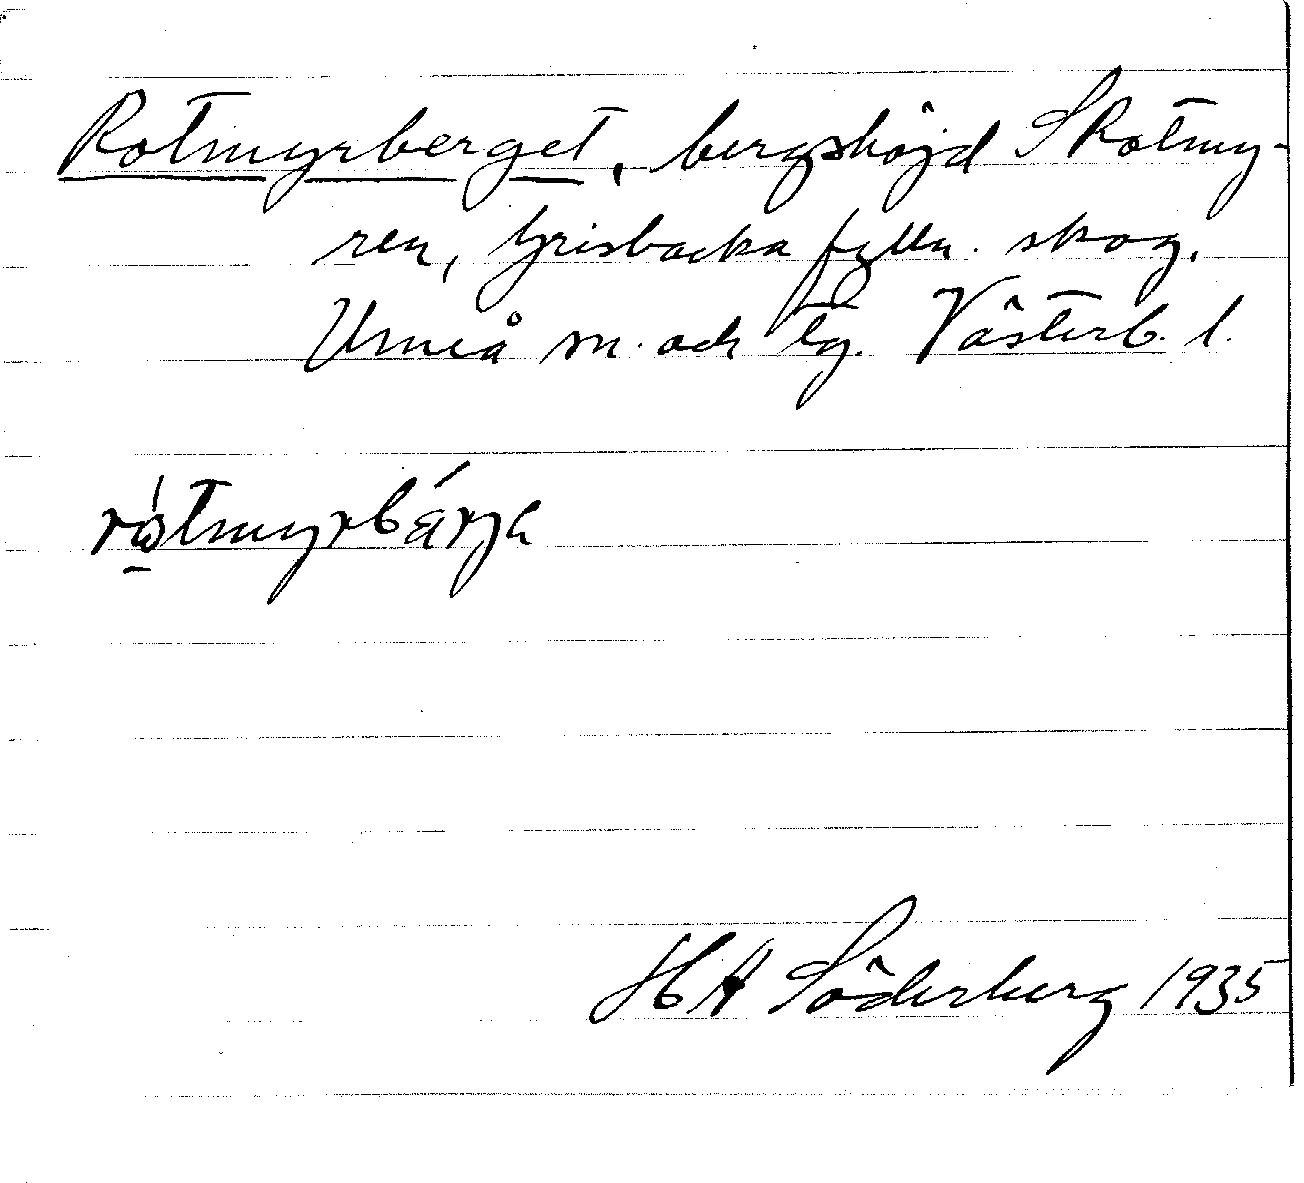 Rotmyrberget, bergshöjd S Rotmy-
ren, Grisbacka fylln. skog.
Umeå sn. och tg. Västerb. l.
rótmyrbárja
H A Söderberg 1935